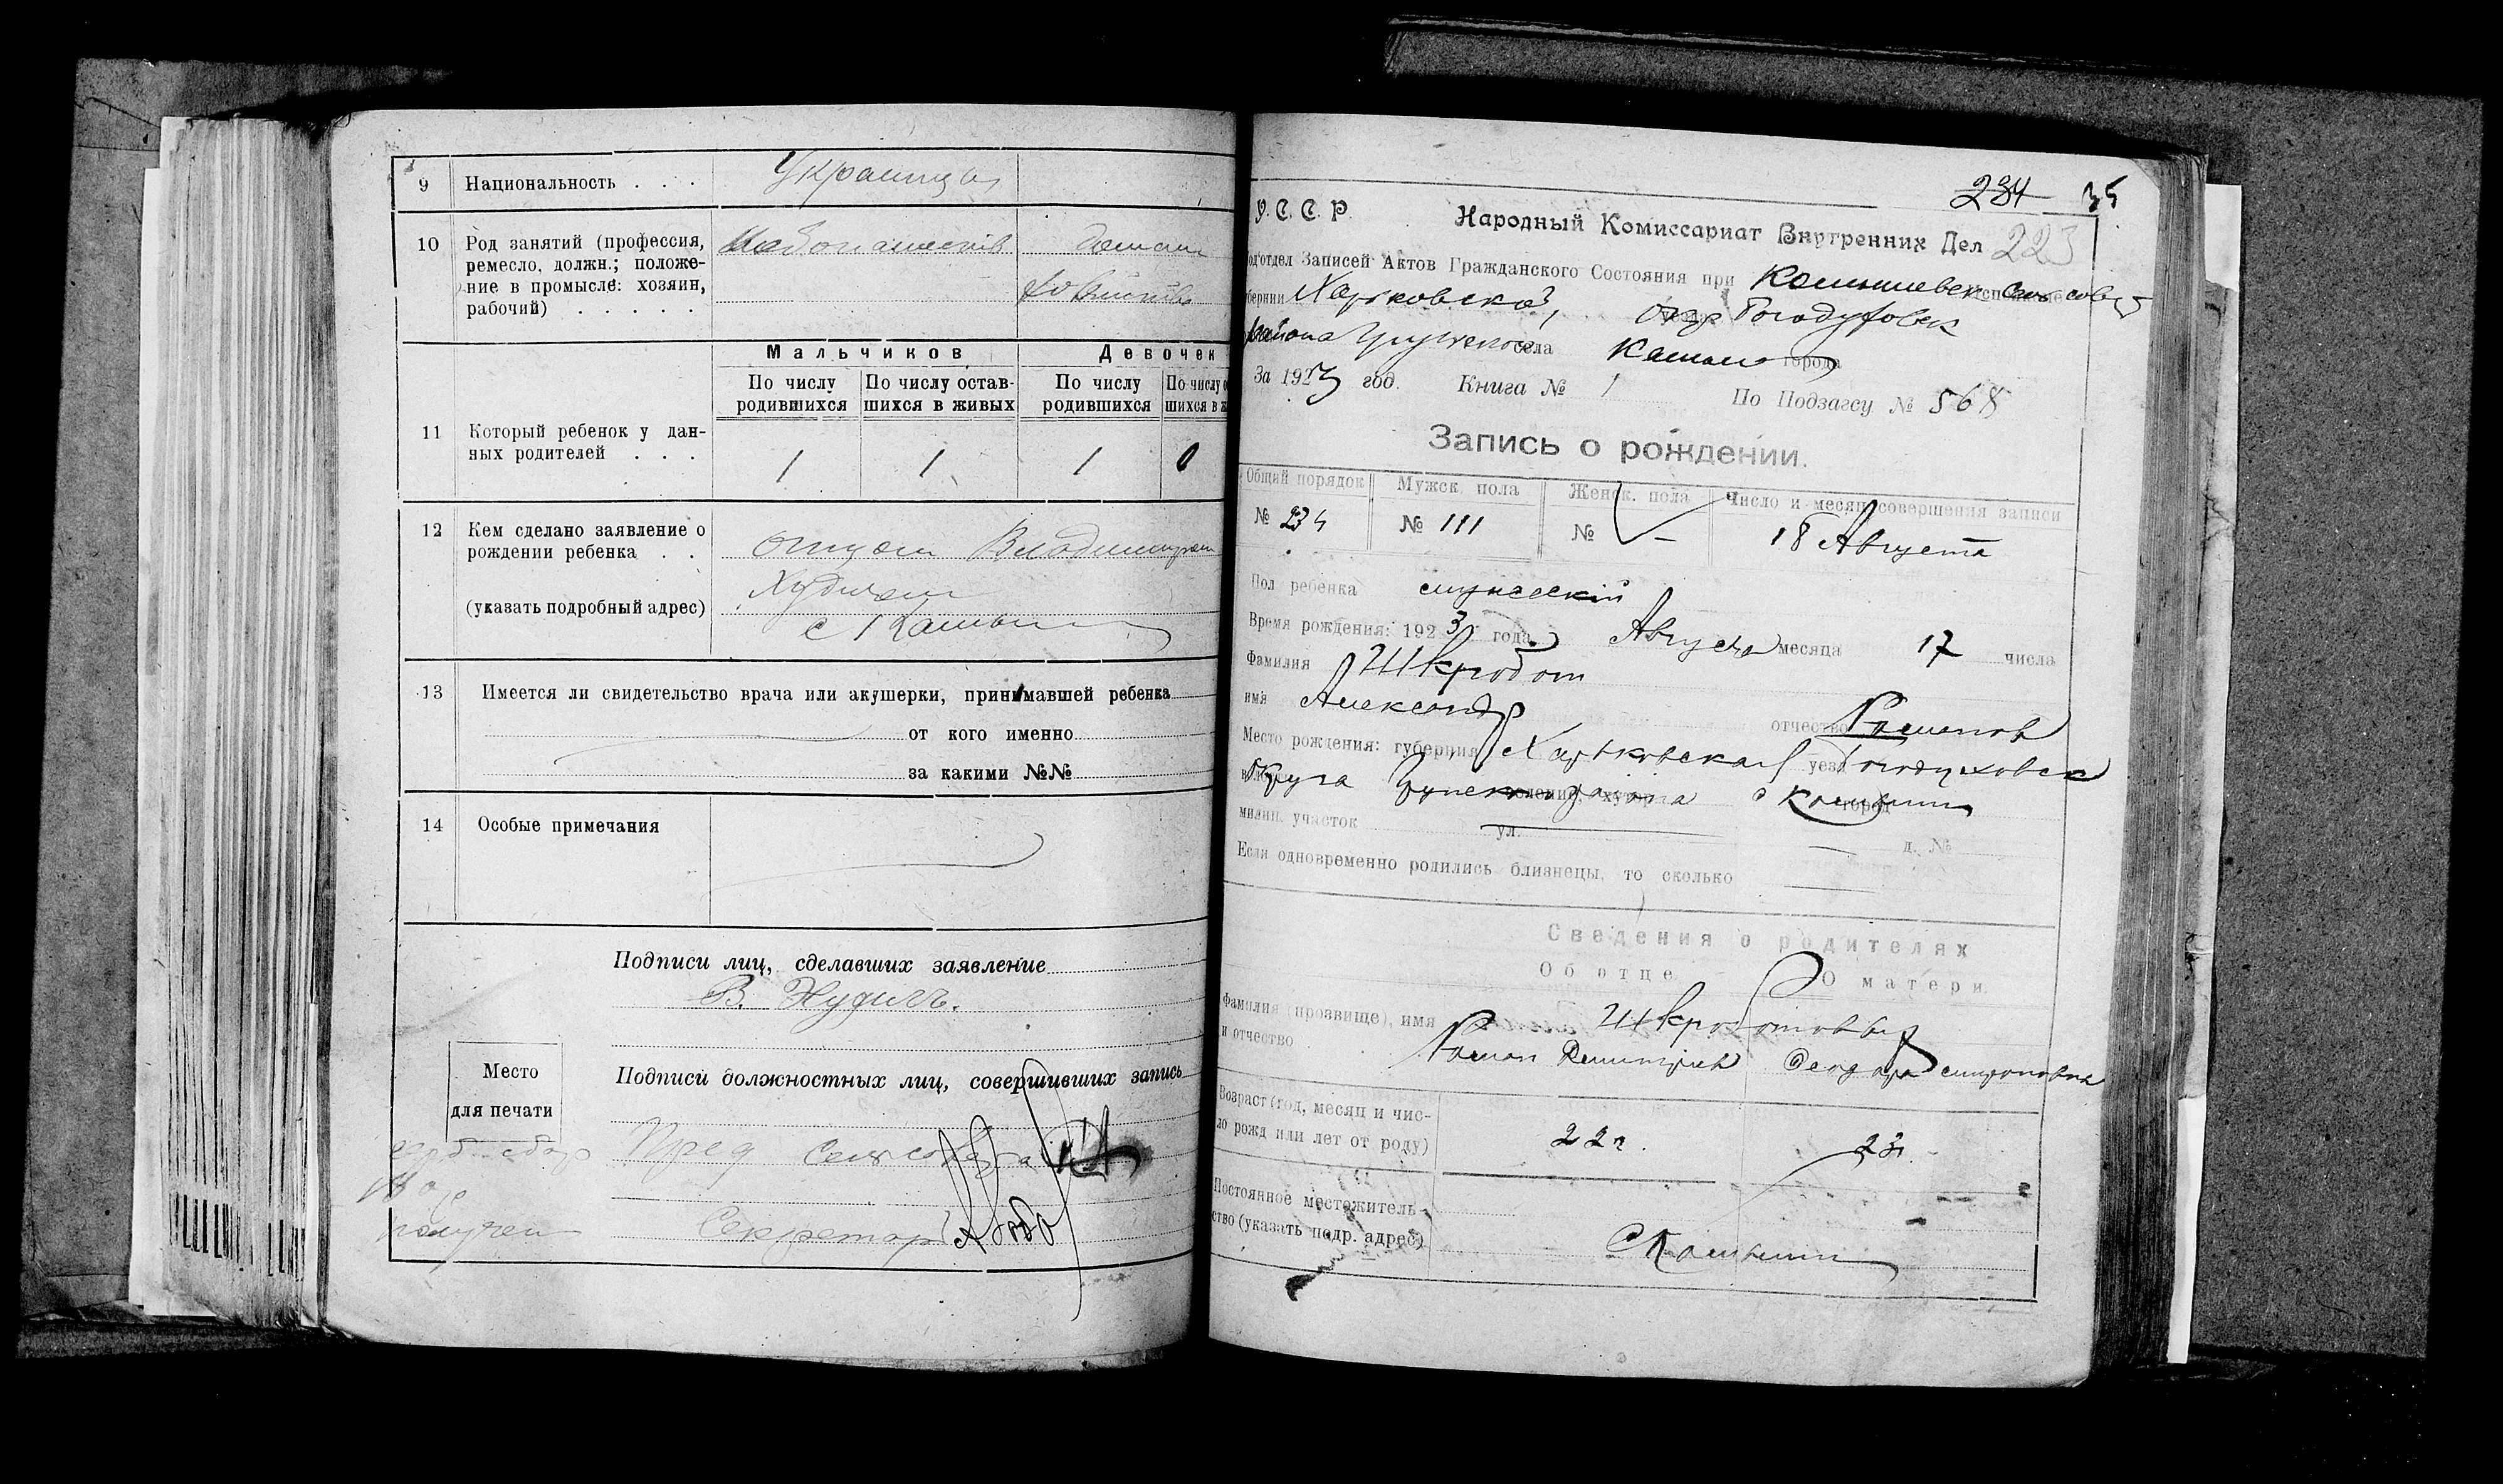 9 Национальность . . . Украинцы
10 Род занятий (профессия, ремесло, должн.; положение в промысле: хозяин, рабочий) . . . . .
Хлебопашеств домаш
Мальчиков Девочек
По числу родившихся По числу оставшихся в живых По числу родившихся По числу о
шихся в ж
11 Который ребенок у данных родителей . . . 1 1 1 0
12 Кем сделано заявление о рождении ребенка . . отцом Владимиром
(указать подробный адрес)
с Камыши
13 Имеется ли свидетельство врача или акушерки, принимавшей ребенка
от кого именно
за какими №№
14 Особые примечания
Подписи лиц, сделавших заявление
В. Худичъ.
Место для печати
Подписи должностных лиц, совершивших запись
Пред Сельсовета
получен
Секретарь
234 35
У. С. С. Р. Народный Комиссариат Внутренних Дел 223
од'отдел Записей Актов Гражданского Состояния при Камышевск сельсовет
бернии Харьковской, окр Богодуховск
района села Камыши города
За 1923 год. Книга № 1 По Подзагсу № 568
Запись о рождении.
Общий порядок Мужск. пола Женск. пола Число и месяц совершения записи
№ 234 № 111 № — 18 Августа
Пол ребенка мужеский
Время рождения: 1923 года Августа месяца 17 числа
Фамилия Шкробот
имя Александр отчество Романов
Место рождения: губерния Харьковская уезд Богодуховск
округа района с Камыши город
милиц. участок ул. — д. №
Если одновременно родились близнецы, то сколько —
Сведения о родителях
Об отце О матери
Фамилия (прозвище), имя и отчество Шкроботовы
Роман Дмитриев Феодора Мироновна
Возраст (год, месяц и число рожд или лет от роду) 22 г. 23 г.
Постоянное местожительство (указать подр. адрес)
С Камыши